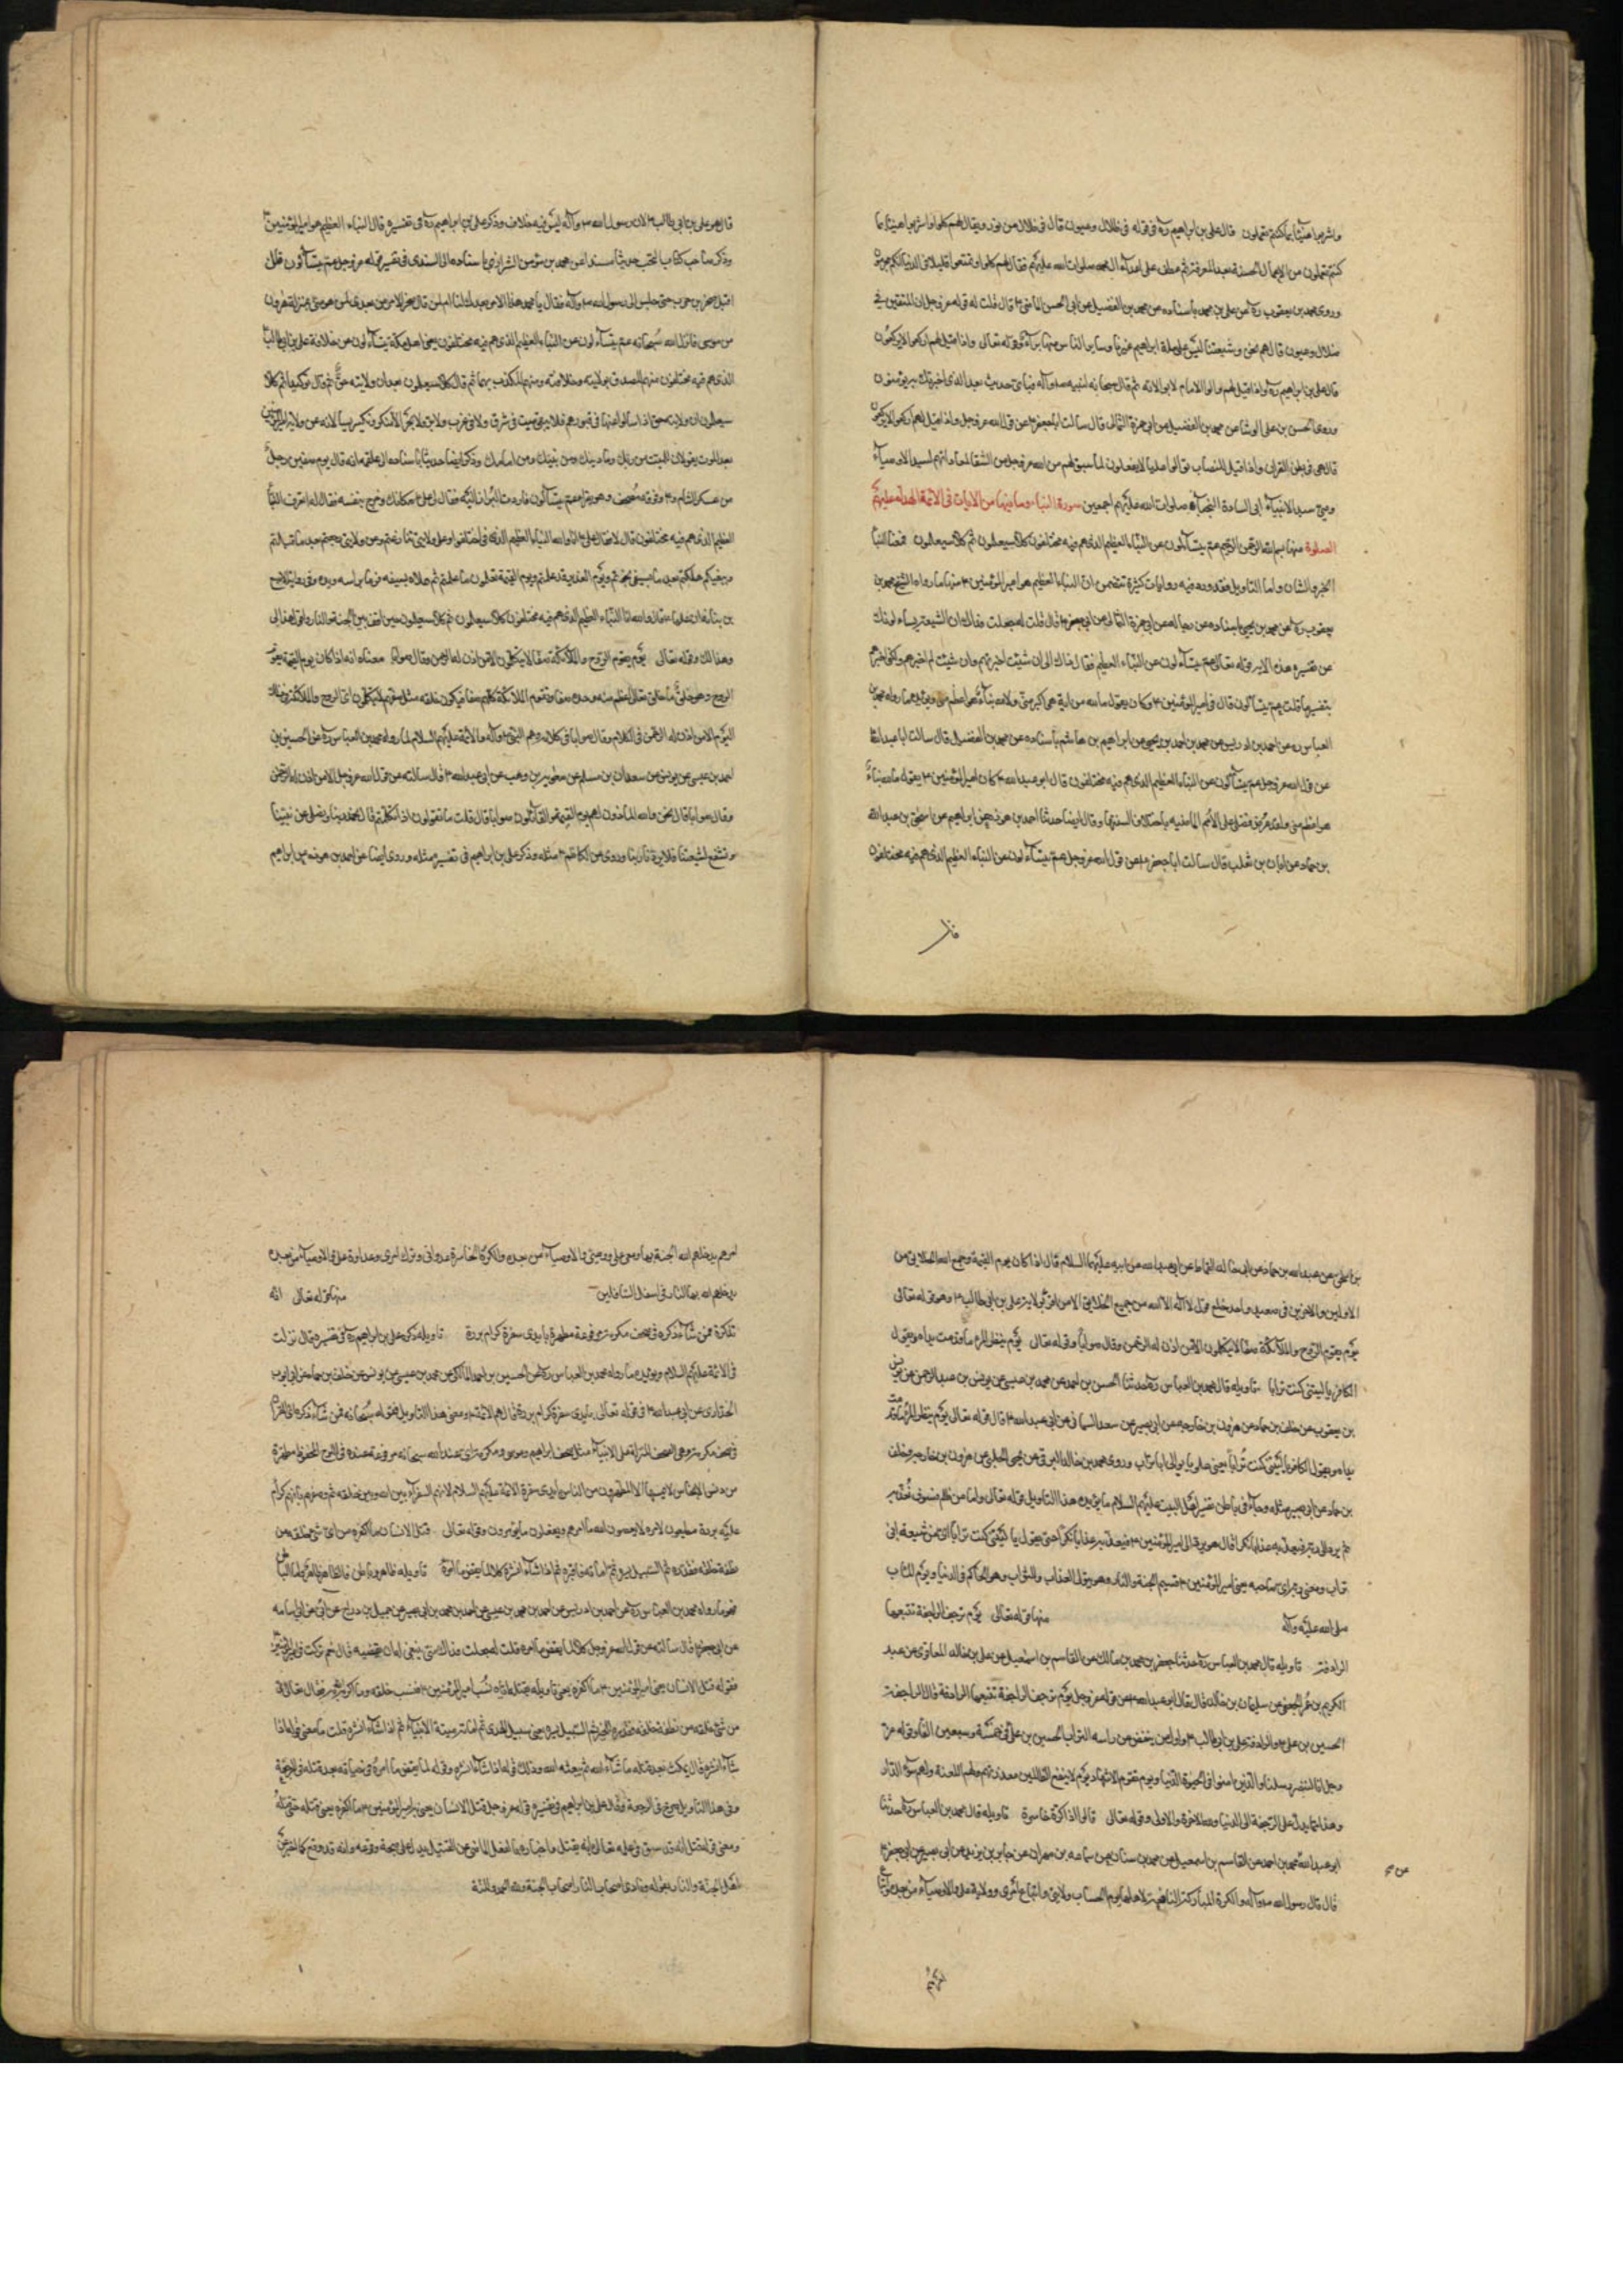 واشربوا هنيئا بما كنتم تعملون قال علي بن ابراهيم ره في قوله في ظلال وعيون قال في ظلال من نور ويقال لهم كلوا واشربوا هنيئا بما
كنتم تعملون من الاعمال الحسنة بعد المعرفة ثم عطف على اعداء ال محمد صلوات الله عليهم فقال لهم كلوا وتمتعوا قليلا في الدنيا انكم مجرمون
وروى محمد بن يعقوب ره عن علي بن محمد باسناده عن محمد بن الفضيل عن ابي الحسن الماضي ع قال قلت له قوله عز وجل ان المتقين في
ظلال وعيون قال هم نحن وشيعتنا ليس على ملة ابراهيم غيرنا وساير الناس منها برآء وقوله تعالى واذا قيل لهم اركعوا لا يركعون
قال علي بن ابراهيم ره واذا قيل لهم والوا الامام لا يوالونه ثم قال سبحانه لنبيه ص وآله فباي حديث بعد الذي اخبرتك به يؤمنون
وروى الحسن بن علي الوشا عن محمد بن الفضيل عن ابي حمزة الثمالي قال سالت ابا جعفر ع عن قول الله عز وجل واذا قيل لهم اركعوا لا يركعون
قال هي في بطن القرآن واذا قيل للنصاب توالوا عليا لا يفعلون لما سبق لهم من الله عز وجل من الشقا لمعاداتهم لسيد الاوصيآء
سيد الانبيآء ابي السادة النجبآء صلوات الله عليهم اجمعين سورة النباء وما فيها من الايات في الائمة الهداة عليهم
الصلوة منها بسم الله الرحمن الرحيم عم يتسآءلون عن النباء العظيم الذي هم فيه مختلفون كلا سيعلمون ثم كلا سيعلمون فمعنا النبا
الخبر والشان واما التاويل فقد ورد فيه روايات كثيرة تتضمن ان النباء العظيم هو امير المؤمنين ع منها ما رواه الشيخ محمد بن
يعقوب ره عن محمد بن يحيى باسناده عن رجاله عن ابي حمزة الثمالي عن ابي جعفر ع قال قلت له جعلت فداك ان الشيعة يسالونك
عن تفسير هذه الاية قوله تعالى عم يتسآءلون عن النباء العظيم فقال ذاك الي ان شيئت اخبرتهم وان شيئت لم اخبرهم ولكني اخبرك
بتفسيرها قلت عم يتسآءلون قال في امير المؤمنين ع وكان يقول ما لله من اية هي اكبر مني ولا لله نباء هو اعظم مني ويؤيده ما رواه محمد بن
العباس ره عن احمد بن ادريس عن محمد بن احمد بن يحيى عن ابراهيم بن هاشم باسناده عن محمد بن الفضيل قال سالت ابا عبد الله ع
عن قول الله عز وجل عم يتسآءلون عن النباء العظيم الذي هم فيه مختلفون قال ابو عبد الله ع كان امير المؤمنين ع يقول ما لله نباء
هو اعظم مني ولقد عرض فضلي على الامم الماضيه باختلاف السنتها وقال ايضا حدثنا احمد بن هوذه عن ابراهيم بن اسحق عن عبد الله
بن حماد عن ابان بن تغلب قال سالت ابا جعفر ع عن قول الله عز وجل عم يتسآءلون عن النباء العظيم الذي هم فيه مختلفون
فقال
قال هو علي بن ابي طالب ع لان رسول الله ص وآله ليس فيه خلاف وذكر علي بن ابراهيم ره في تفسيره قال النباء العظيم هو امير المؤمنين ع
وذكر صاحب كتاب النخب حديثا مسندا عن محمد بن مؤمن الشيرازي باسناده الى السدي في تفسير قوله عز وجل عم يتسآءلون قال
اقبل صخر بن حرب حتى جلس الى رسول الله ص وآله فقال يا محمد هذا الامر بعدك لنا ام لمن قال يا صخر الامر من بعدي لمن هو مني بمنزلة هرون
من موسى فانزل الله سبحانه عم يتسآءلون عن النباء العظيم الذي هم فيه مختلفون يعني اهل مكة يتسآءلون عن خلافة علي بن ابي طالب
الذي هم فيه مختلفون منهم المصدق بولايته وخلافته ومنهم المكذب بهما ثم قال كلا سيعلمون بعد ان ولايته حق ثم قال توكيدا ثم كلا
سيعلمون ان ولايته حق اذا سالوا عنها في قبورهم فلا يبقى ميت في شرق ولا في غرب ولا بر ولا بحر الا منكر ونكير يسالانه عن ولاية امير المؤمنين
بعد الموت يقولان للميت من ربك وما دينك ومن نبيك ومن امامك وذكر ايضا حديثا باسناده الى علقمه انه قال يوم صفين رجل
من عسكر الشام و وفوقه مصحف وهو يقرا عم يتسآءلون فاردت البراز اليه فقال لي علي ع مكانك وخرج بنفسه فقال له اتعرف النبا
العظيم الذي هم فيه مختلفون قال لا فقال علي ع انا والله النباء العظيم الذي في اختلفوا وعلى ولايتي تنازعتم وعن ولايتي رجعتم بعد ما قبلتم
وببغيكم هلكتم بعد ما بسيفي نجوتم ويوم الغدير قد علمتم ويوم القيمة تعلمون ما علمتم ثم علاه بسيفه فرما براسه ويده وفي رواية الاصبغ
بن نباته ان عليا ع قال والله انا النباء العظيم الذي هم فيه مختلفون كلا سيعلمون ثم كلا سيعلمون حين اقف بين الجنة والنار واقول هذا لي
وهذا لك وقوله تعالى يوم يقوم الروح والملآئكة صفا لا يتكلمون الا من اذن له الرحمن وقال صوابا معناه انه اذا كان يوم القيمة يقوم
الروح وهو خلق ما خلق الله تعالى اعظم منه وحده صفا وتقوم الملائكة كلهم صفا فيكون خلقه مثل صفهم لا يتكلمون اي الروح والملائكة في ذلك
اليوم الا من اذن له الرحمن في الكلام وقال صوابا في كلامه وهم النبي ص وآله والائمة عليهم السلام لما رواه محمد بن العباس ره عن الحسين بن
احمد بن عيسى عن يونس عن سعدان بن مسلم عن معوية بن وهب عن ابي عبد الله ع قال سالته عن قول الله عز وجل الا من اذن له الرحمن
وقال صوابا قال نحن والله الماذون لهم يوم القيمة والقائلون صوابا قال قلت ما تقولون اذا تكلمتم قال نحمد ربنا ونصلي على نبينا
ونشفع لشيعتنا فلا يردنا ربنا وروى عن الكاظم ع مثله وذكر علي بن ابراهيم في تفسيره مثله وروى ايضا عن احمد بن هوذه عن ابراهيم
بن اسحق عن عبد الله بن حماد عن ابي خالد القماط عن ابي عبد الله عن ابيه عليهما السلام قال اذا كان يوم القيمة وجمع الله الخلايق من
الاولين والاخرين في صعيد واحد خلع قول لا اله الا الله من جميع الخلايق الا من اقر بولاية علي بن ابي طالب ع وهو قوله تعالى
يوم يقوم الروح والملآئكة صفا لا يتكلمون الا من اذن له الرحمن وقال صوابا وقوله تعالى يوم ينظر المرء ما قدمت يداه ويقول
الكافر يا ليتني كنت ترابا تاويله قال محمد بن العباس ره حدثنا الحسين بن احمد عن محمد بن عيسى عن يونس بن عبد الرحمن عن يونس
بن يعقوب عن خلف بن حماد عن هرون بن خارجه عن ابي بصير عن سعد السمان عن ابي عبد الله ع قال قوله تعالى يوم ينظر المرء ما قدمت
يداه ويقول الكافر يا ليتني كنت ترابا يعني علويا يوالي ابا تراب وروى محمد بن خالد البرقي عن يحيى الحلبي عن هرون بن خارجه وخلف
بن حماد عن ابي بصير مثله وجآء في باطن تفسير اهل البيت عليهم السلام ما يؤيد هذا التاويل قوله تعالى واما من ظلم فسوف نعذبه
ثم يرد الى ربه فيعذبه عذابا نكرا قال هو يرد الى امير المؤمنين ع فيعذبه عذابا نكرا حتى يقول يا ليتني كنت ترابا اي من شيعة ابي
تراب ومعنى ربه اي صاحبه يعني امير المؤمنين ع قسيم الجنة والنار وهو يتولى العذاب والثواب وهو الحاكم في الدنيا ويوم الماب
صلى الله عليه وآله منها قوله تعالى يوم ترجف الراجفة تتبعها
الرادفة تاويله قال محمد بن العباس ره حدثنا جعفر بن محمد بن مالك عن القاسم بن اسمعيل عن علي بن خالد العاقولي عن عبد
الكريم بن عمر الجعفي عن سليمان بن خالد قال قال ابو عبد الله ع عن قوله عز وجل يوم ترجف الراجفة تتبعها الرادفة قال الراجفة
الحسين بن علي ع والرادفة علي بن ابي طالب ع واول من ينفض عن راسه التراب الحسين بن علي في خمسة وسبعين الفا وقوله عز
وجل انا لننصر رسلنا والذين امنوا في الحيوة الدنيا ويوم يقوم الاشهاد يوم لا ينفع الظالمين معذرتهم ولهم اللعنة ولهم سوء الدار
وهذا مما يدل على الرجعة الى الدنيا ولله الاخرة والاولى وقوله تعالى قالوا تلك اذا كرة خاسرة تاويله قال محمد بن العباس ره حدثنا
ابو عبد الله محمد بن احمد عن القاسم بن اسمعيل عن محمد بن سنان عن سماعه بن مهران عن جابر بن يزيد عن ابي بصير عن ابي جعفر ع
قال قال رسول الله ص وآله الكرة المباركة النافعة لاهلها يوم الحساب ولايتي واتباع امري وولاية علي والاوصيآء من بعده واتباع
امرهم يدخلهم الله الجنة بها ومعي علي ووصيي والاوصيآء من بعده والكرة الخاسرة عداوتي وترك امري وعداوة علي والاوصيآء من بعده
يدخلهم الله بها النار في اسفل السافلين منها قوله تعالى انه
تذكرة فمن شآء ذكره في صحف مكرمة مرفوعة مطهرة بايدي سفرة كرام بررة تاويله ذكر علي بن ابراهيم ره في تفسيره قال نزلت
في الائمة عليهم السلام ويؤيده ما رواه محمد بن العباس ره عن الحسين بن احمد المالكي عن محمد بن عيسى عن يونس عن خلف بن حماد عن ابي ايوب
الحذاء عن ابي عبد الله ع في قوله تعالى بايدي سفرة كرام بررة قال هم الائمة ع ومعنى هذا التاويل فقوله سبحانه فمن شآء ذكره اي القرآن
في صحف مكرمة وهي الصحف المنزلة على الانبيآء مثل صحف ابراهيم وموسى ومكرمة اي عند الله سبحانه مرفوعة عنده في اللوح المحفوظ مطهرة
من دنس الانجاس لا يمسها الا المطهرون من الناس بايدي سفرة الائمة عليهم السلام لانهم السفرآء بين الله وبين خلقه ثم وصفهم بانهم كرام
عليه بررة مطيعون لامره لا يعصون الله ما امرهم ويفعلون ما يؤمرون وقوله تعالى قتل الانسان ما اكفره من اي شيء خلقه من
نطفة خلقه فقدره ثم السبيل يسره ثم اماته فاقبره ثم اذا شآء انشره كلا لما يقض ما امره تاويله ظاهر وباطن فالظاهر ظاهر واما الباطن
فهو ما رواه محمد بن العباس ره عن احمد بن ادريس عن احمد بن محمد بن عيسى عن احمد بن محمد بن ابي نصر عن جميل بن دراج عن ابي اسامه
عن ابي جعفر ع قال سالته عن قول الله عز وجل كلا لما يقض ما امره قلت له جعلت فداك متى ينبغي له ان يقضيه قال نعم نزلت في امير المؤمنين
فقوله قتل الانسان يعني امير المؤمنين ع ما اكفره يعني قاتله بقتله اياه ثم نسب امير المؤمنين ع فنسب خلقه وما اكرمه الله به فقال تعالى
من شيء خلقه من نطفة خلقه فقدره للخير ثم السبيل يسره يعني سبيل الهدى ثم اماته ميتة الانبيآء ثم اذا شآء انشره قلت ما معنى قوله اذا
شآء انشره قال يمكث بعد قتله ما شآء الله ثم يبعثه الله وذلك قوله اذا شآء انشره وقوله لما يقض ما امره في حياته بعد قتله في الرجعة
وفي هذا التاويل صرح في الرجعة وقال علي بن ابراهيم في تفسيره قوله عز وجل قتل الانسان يعني به امير المؤمنين ع ما اكفره يعني قتله
ومعنى قوله قتل انه قد سبق في علمه تعالى انه يقتل واخباره بالفعل الماضي عن المستقبل يدل على صحة وقوعه وانه قد وقع كما اخبر عن
اهل الجنة والنار بقوله ونادى اصحاب النار اصحاب الجنة ولله الحمد والمنة